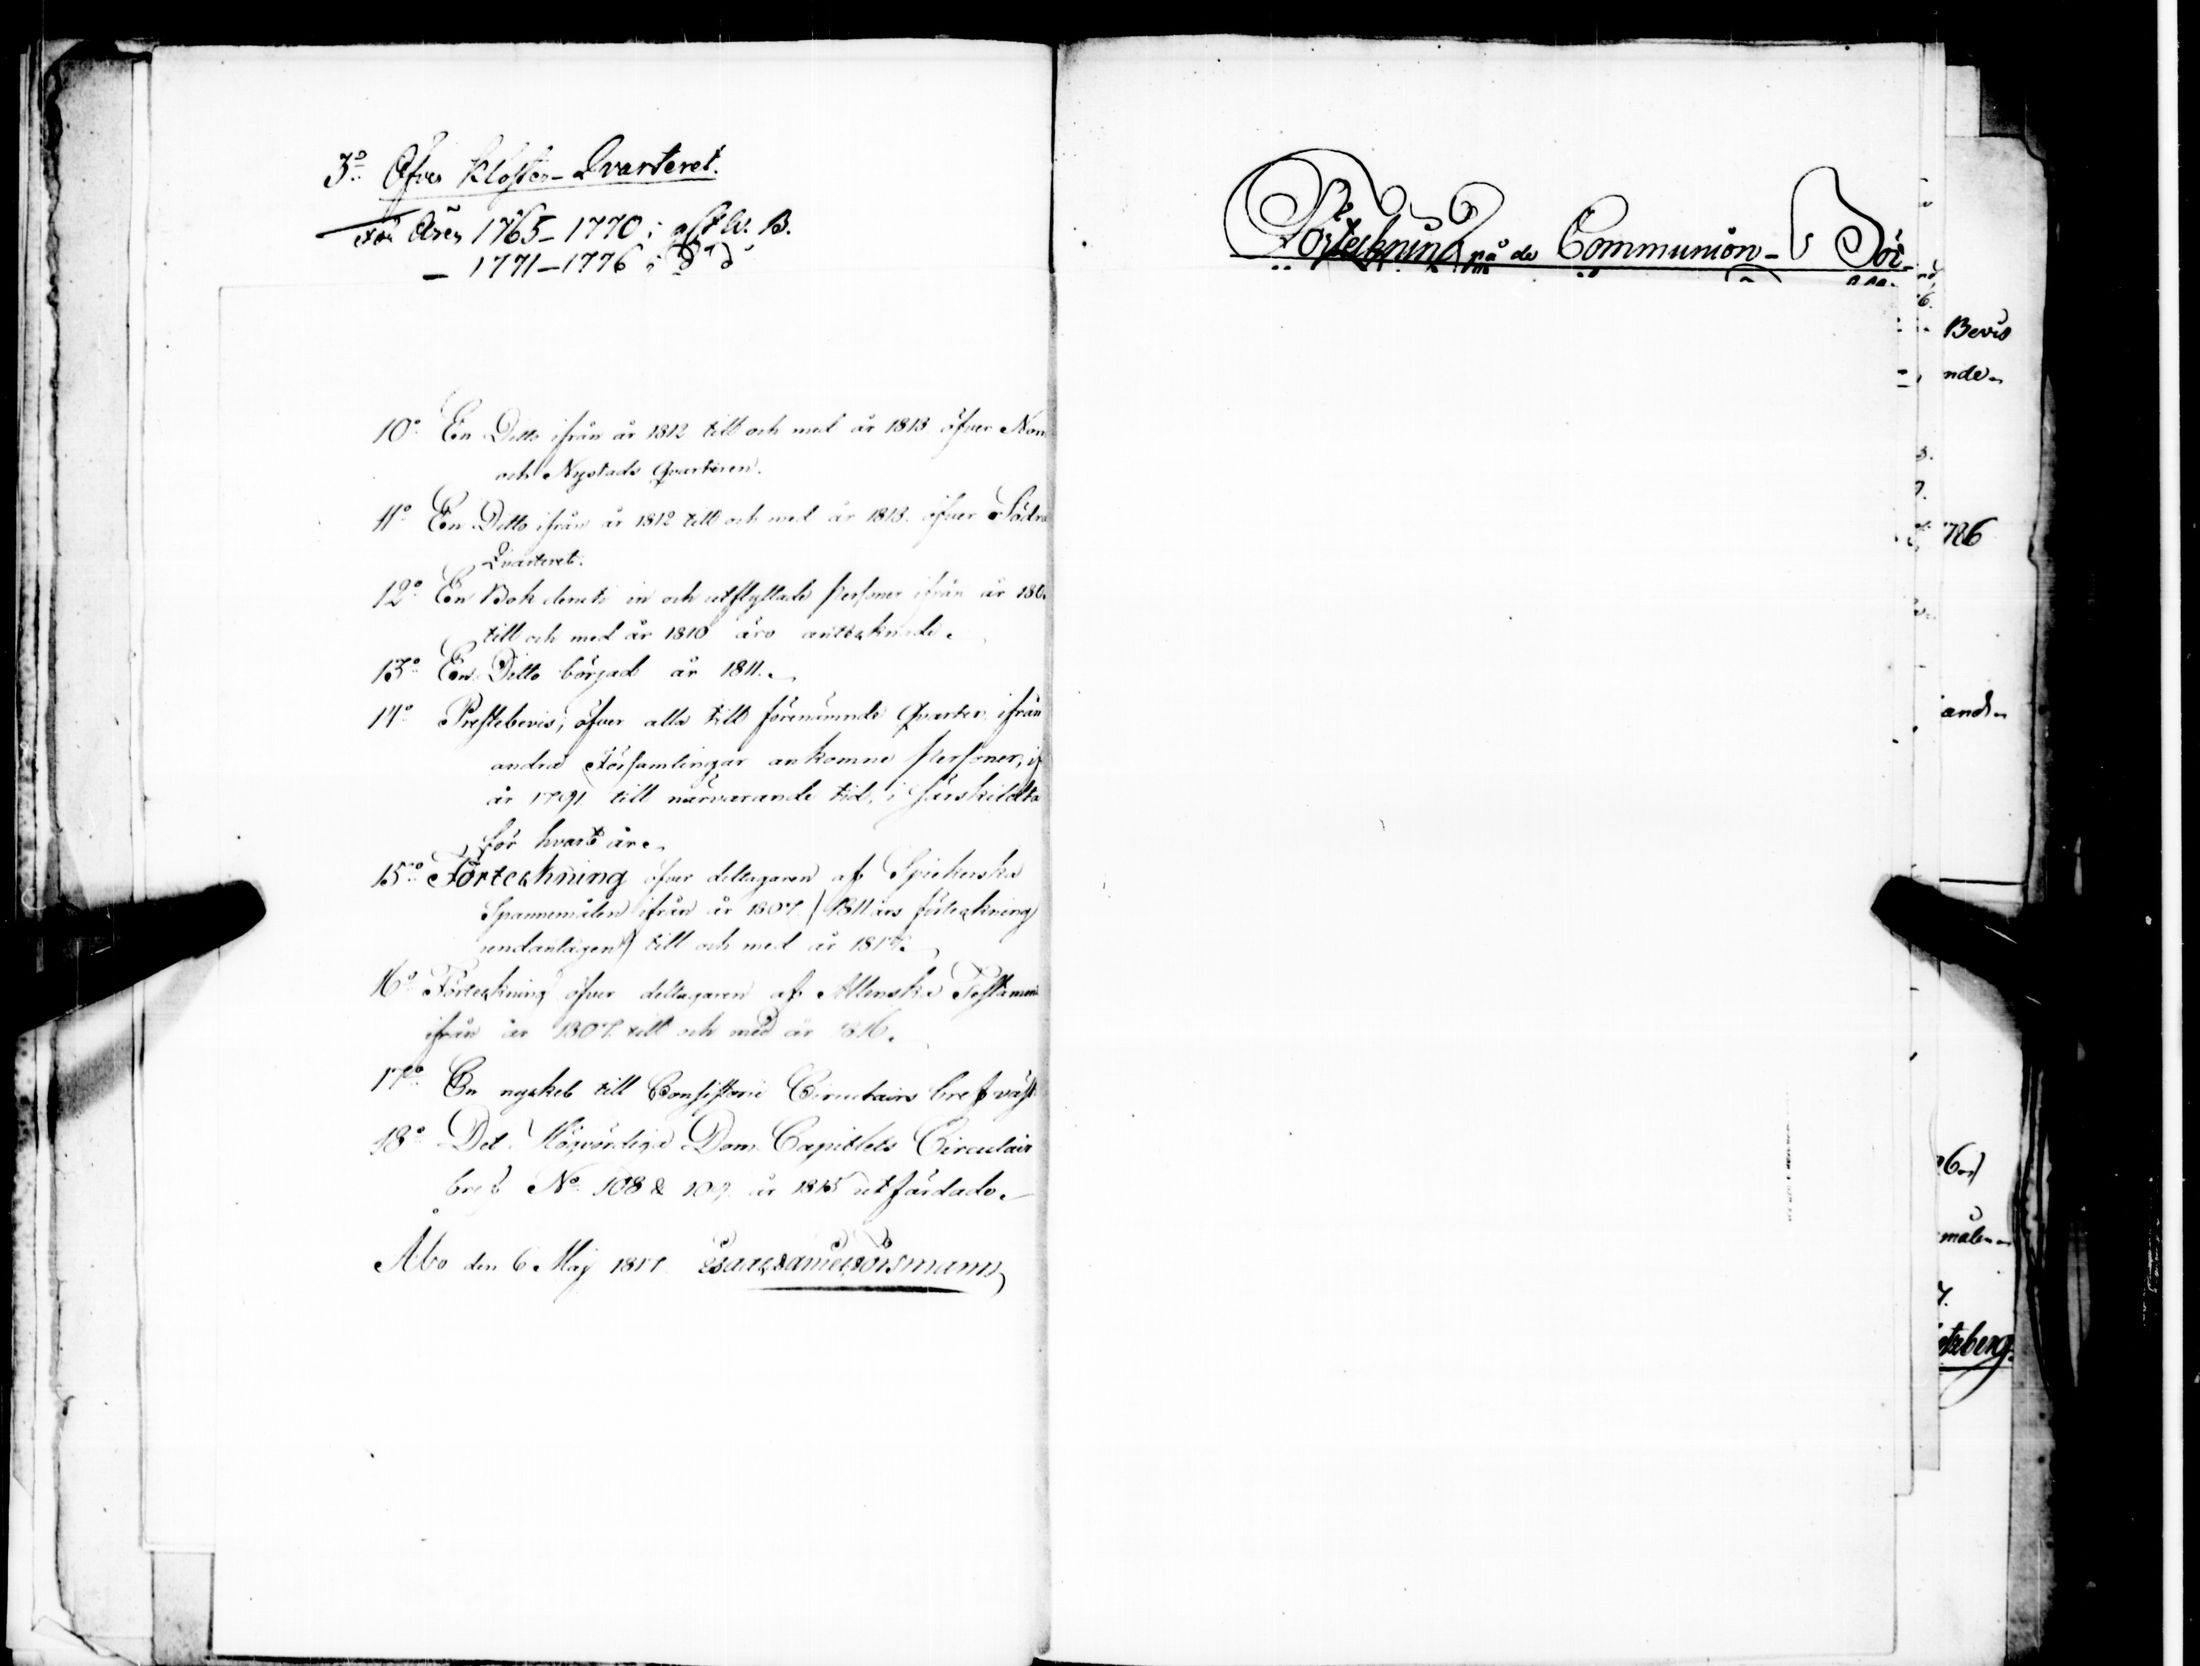 3:o Öfver Kloster-Qvarteret.
För Åren 1765-1770 i
- 1771-1776 i
10:o En Ditto ifrån år 1812 till och med år 1813 öfver Norr
och Nystads Qvarteren.
11:o En Ditto ifrån år 1812 till och med år 1813 öfver Södra
Qvarteret.
12:o En Bok deruti in och utflyttade Personer ifrån år 180
till och med år 1810 äro anteknade.
13:o En Ditto börjad år 1811.
14:o Prestebevis, öfver alla till förenämnde Qvarter, ifrån
andra Församlingar ankomne Personer,
år 1791 till närvarande tid, i särskildta
för hvart år.
15:o Förtekning öfver deltagaren af
Spannemålen ifrån år 1807 (1811 års förtekning
undantagen) till och med år
16:o Förtekning öfver deltagaren af Testament
ifrån år 1807 till och med år 1816.
17:o En nyckel till Consistorii Circulairs bref
18:o Det Högvördiga Dom Capitlets Circulair
bref No 108 & 109 år 1815 utfärdade.
Åbo den 6 Maj 1817.
Förtekning på de Communion-
Bevis
nde.
and
målen
berg